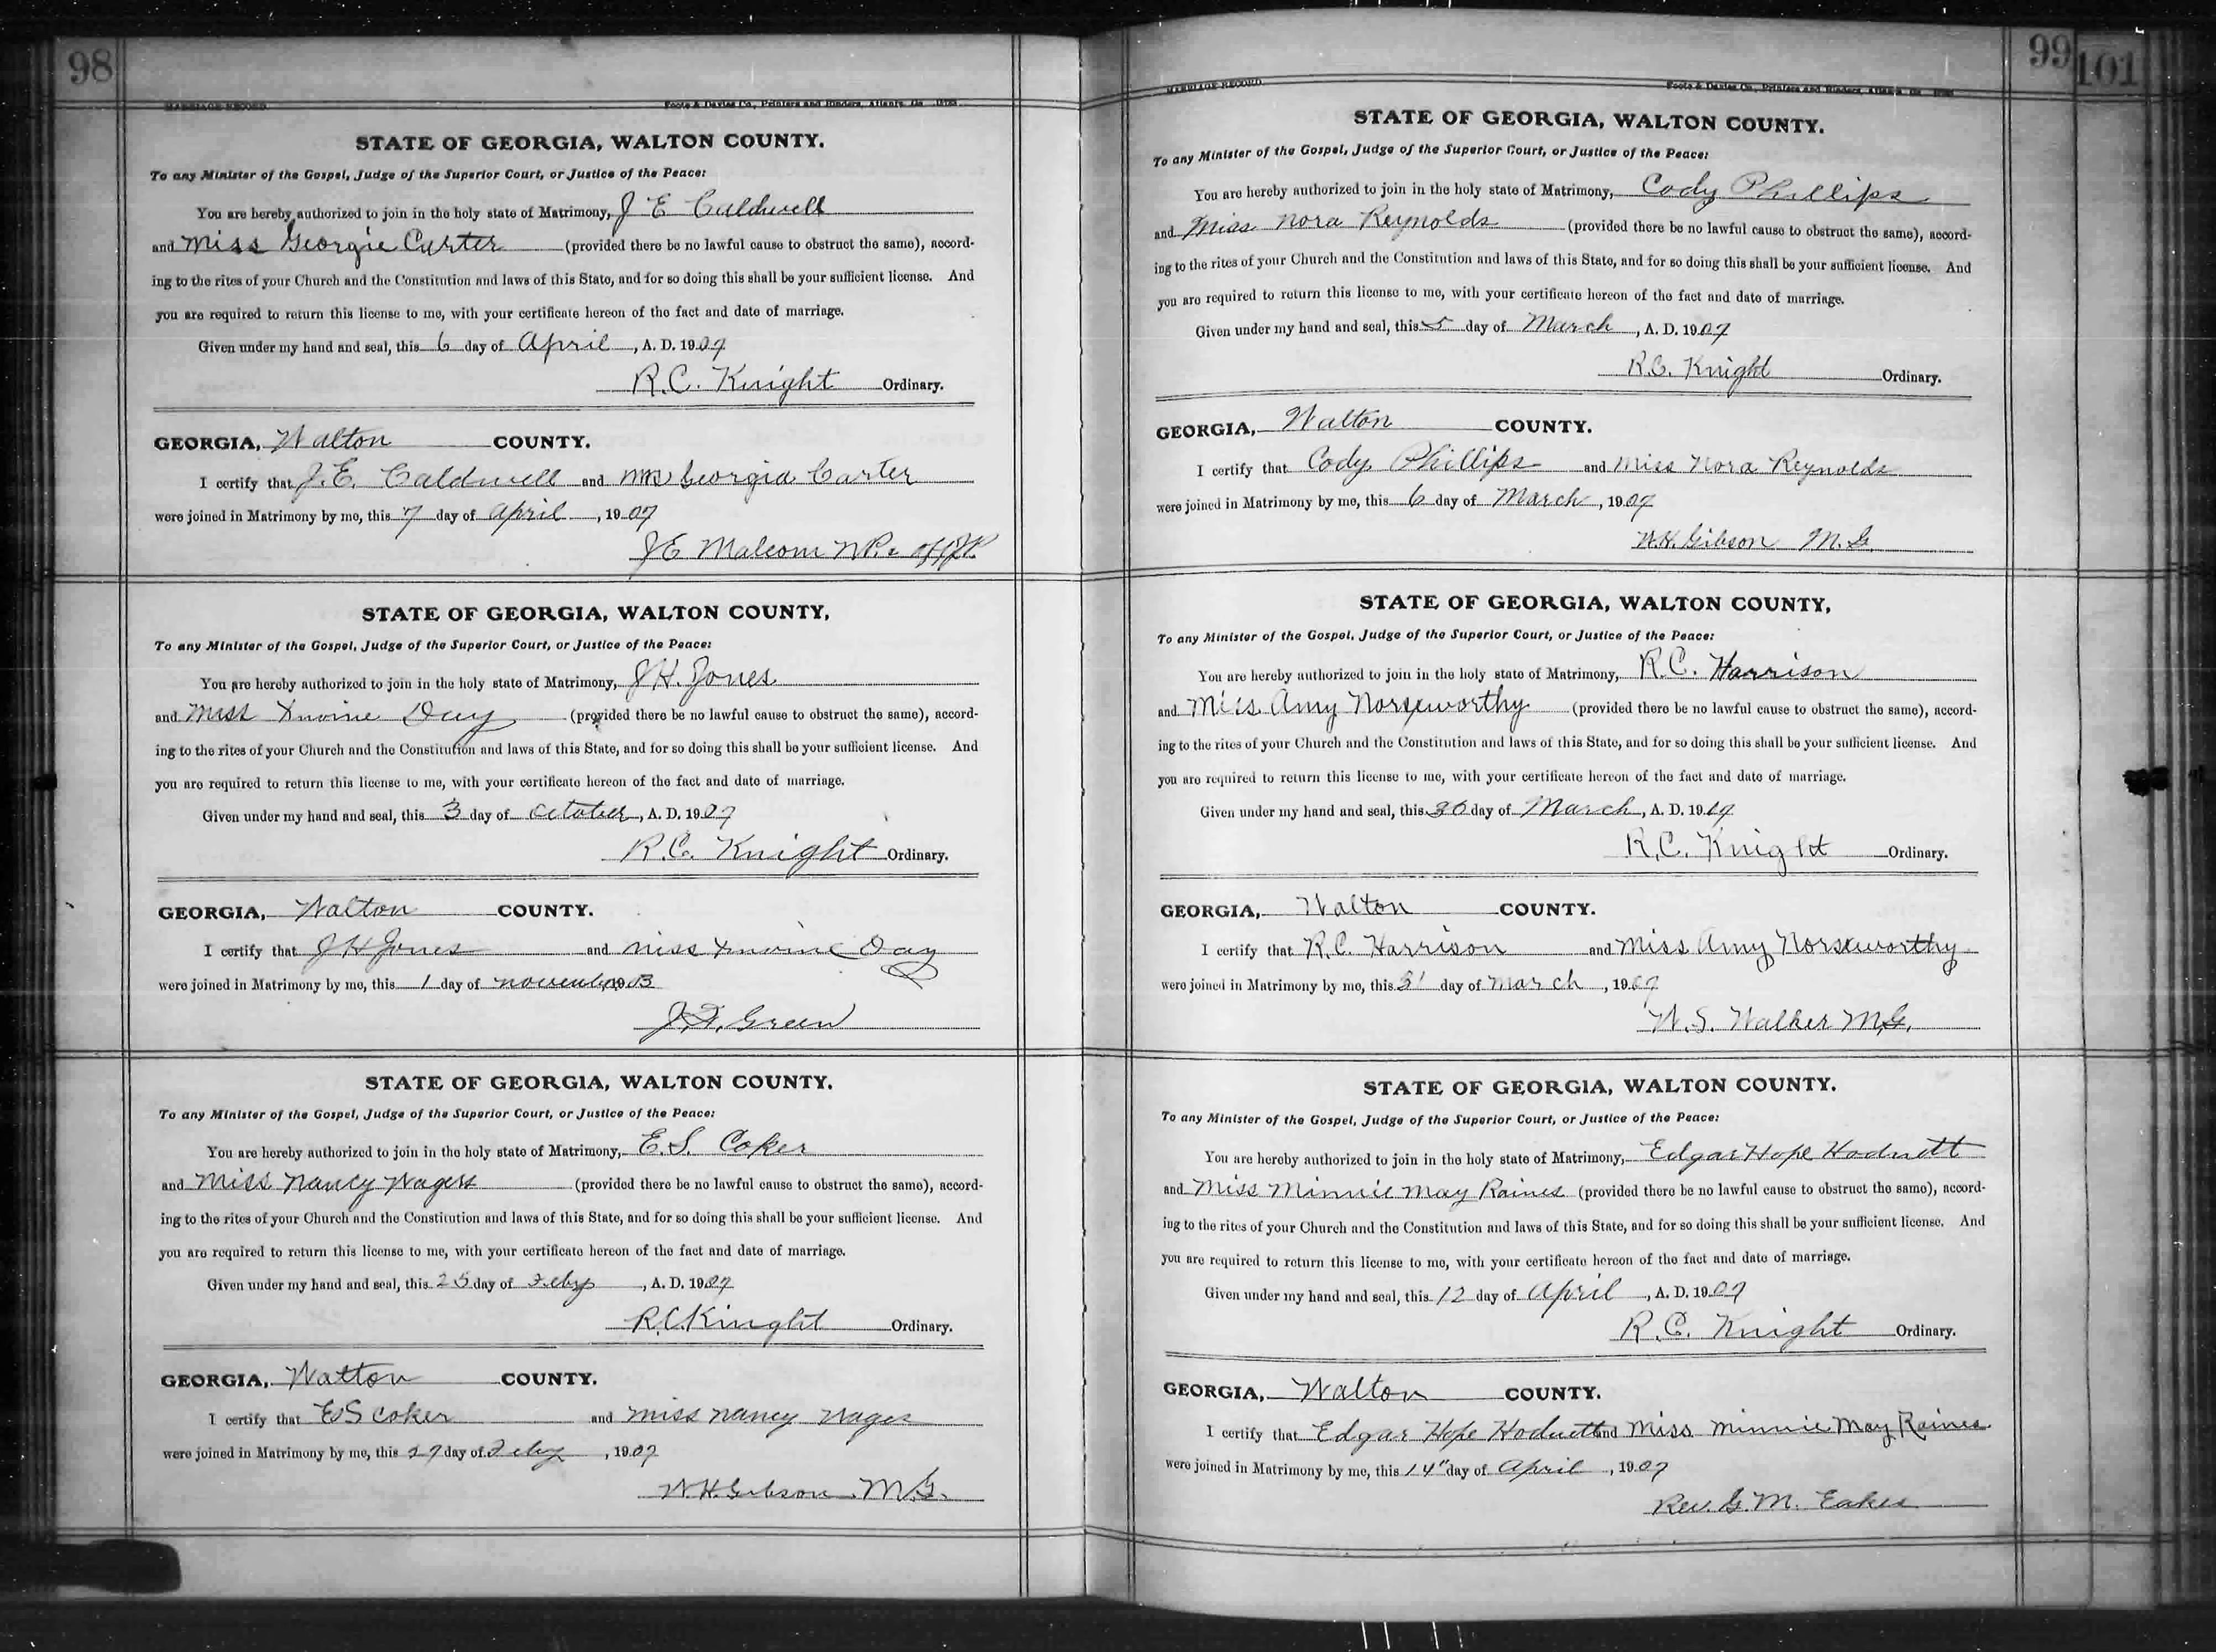 98
MARRIAGE RECORD Foote & Davies Co., Printers and Binders, Atlanta, Ga
STATE OF GEORGIA, WALTON COUNTY.
To any Minister of the Gospel, Judge of the Superior Court, or Justice of the Peace:
You are hereby authorized to join in the holy state of Matrimony, J E Caldwell
and Miss Georgie Carter (provided there be no lawful cause to obstruct the same), accord-
ing to the rites of your Church and the Constitution and laws of this State, and for so doing this shall be your sufficient license. And
you are required to return this license to me, with your certificate hereon of the fact and date of marriage.
Given under my hand and seal, this 6 day of April, A. D. 1907
R.C. Knight Ordinary.
GEORGIA, Walton COUNTY.
I certify that J. E. Caldwell and Georgia Carter
were joined in Matrimony by me, this 7 day of April, 1907
J E Malcom N.P. & Off J.P.
STATE OF GEORGIA, WALTON COUNTY,
To any Minister of the Gospel, Judge of the Superior Court, or Justice of the Peace:
You are hereby authorized to join in the holy state of Matrimony, J H. Jones
and Miss Day (provided there be no lawful cause to obstruct the same), accord-
ing to the rites of your Church and the Constitution and laws of this State, and for so doing this shall be your sufficient license. And
you are required to return this license to me, with your certificate hereon of the fact and date of marriage.
Given under my hand and seal, this 3 day of October, A. D. 1907
R.C. Knight Ordinary.
GEORGIA, Walton COUNTY.
I certify that J H Jones and Miss Day
were joined in Matrimony by me, this 1 day of November 1903
Green
STATE OF GEORGIA, WALTON COUNTY.
To any Minister of the Gospel, Judge of the Superior Court, or Justice of the Peace:
You are hereby authorized to join in the holy state of Matrimony, E.S. Coker
and Miss Nancy Wages (provided there be no lawful cause to obstruct the same), accord-
ing to the rites of your Church and the Constitution and laws of this State, and for so doing this shall be your sufficient license. And
you are required to return this license to me, with your certificate hereon of the fact and date of marriage.
Given under my hand and seal, this 25 day of Feby, A. D. 1907
R.C Knight Ordinary.
GEORGIA, Walton COUNTY.
I certify that E S Coker and Miss Nancy Wages
were joined in Matrimony by me, this 27 day of Feby, 1907
W.H. Gibson M.G.
99
101
MARRIAGE RECORD Foote & Davies Co., Printers and Binders, Atlanta, Ga
STATE OF GEORGIA, WALTON COUNTY.
To any Minister of the Gospel, Judge of the Superior Court, or Justice of the Peace:
You are hereby authorized to join in the holy state of Matrimony, Cody Phillips
and Miss Nora Reynolds (provided there be no lawful cause to obstruct the same), accord-
ing to the rites of your Church and the Constitution and laws of this State, and for so doing this shall be your sufficient license. And
you are required to return this license to me, with your certificate hereon of the fact and date of marriage.
Given under my hand and seal, this 5 day of March, A. D. 1907
R.C. Knight Ordinary.
GEORGIA, Walton COUNTY.
I certify that Cody Phillips and Miss Nora Reynolds
were joined in Matrimony by me, this 6 day of March, 1907
W.H. Gibson M.G.
STATE OF GEORGIA, WALTON COUNTY,
To any Minister of the Gospel, Judge of the Superior Court, or Justice of the Peace:
You are hereby authorized to join in the holy state of Matrimony, R.C. Harrison
and Miss Amy Norseworthy (provided there be no lawful cause to obstruct the same), accord-
ing to the rites of your Church and the Constitution and laws of this State, and for so doing this shall be your sufficient license. And
you are required to return this license to me, with your certificate hereon of the fact and date of marriage.
Given under my hand and seal, this 30 day of March, A. D. 1907
R.C. Knight Ordinary.
GEORGIA, Walton COUNTY.
I certify that R.C. Harrison and Miss Amy Norseworthy
were joined in Matrimony by me, this 31 day of March, 1907
W.S. Walker M.G.
STATE OF GEORGIA, WALTON COUNTY.
To any Minister of the Gospel, Judge of the Superior Court, or Justice of the Peace:
You are hereby authorized to join in the holy state of Matrimony, Edgar Hope Hodnett
and Miss Minnie May Raines (provided there be no lawful cause to obstruct the same), accord-
ing to the rites of your Church and the Constitution and laws of this State, and for so doing this shall be your sufficient license. And
you are required to return this license to me, with your certificate hereon of the fact and date of marriage.
Given under my hand and seal, this 12 day of April, A. D. 1907
R.C. Knight Ordinary.
GEORGIA, Walton COUNTY.
I certify that Edgar Hope Hodnett and Miss Minnie May Raines
were joined in Matrimony by me, this 14" day of April, 1907
Rev. G.M. Eakes